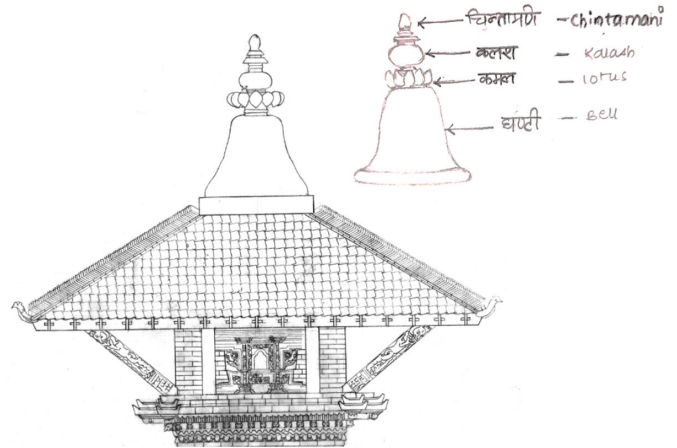 चिन्तामणि - Chintamani
कलश - Kalash
कमल - lotus
घण्टी - Bell